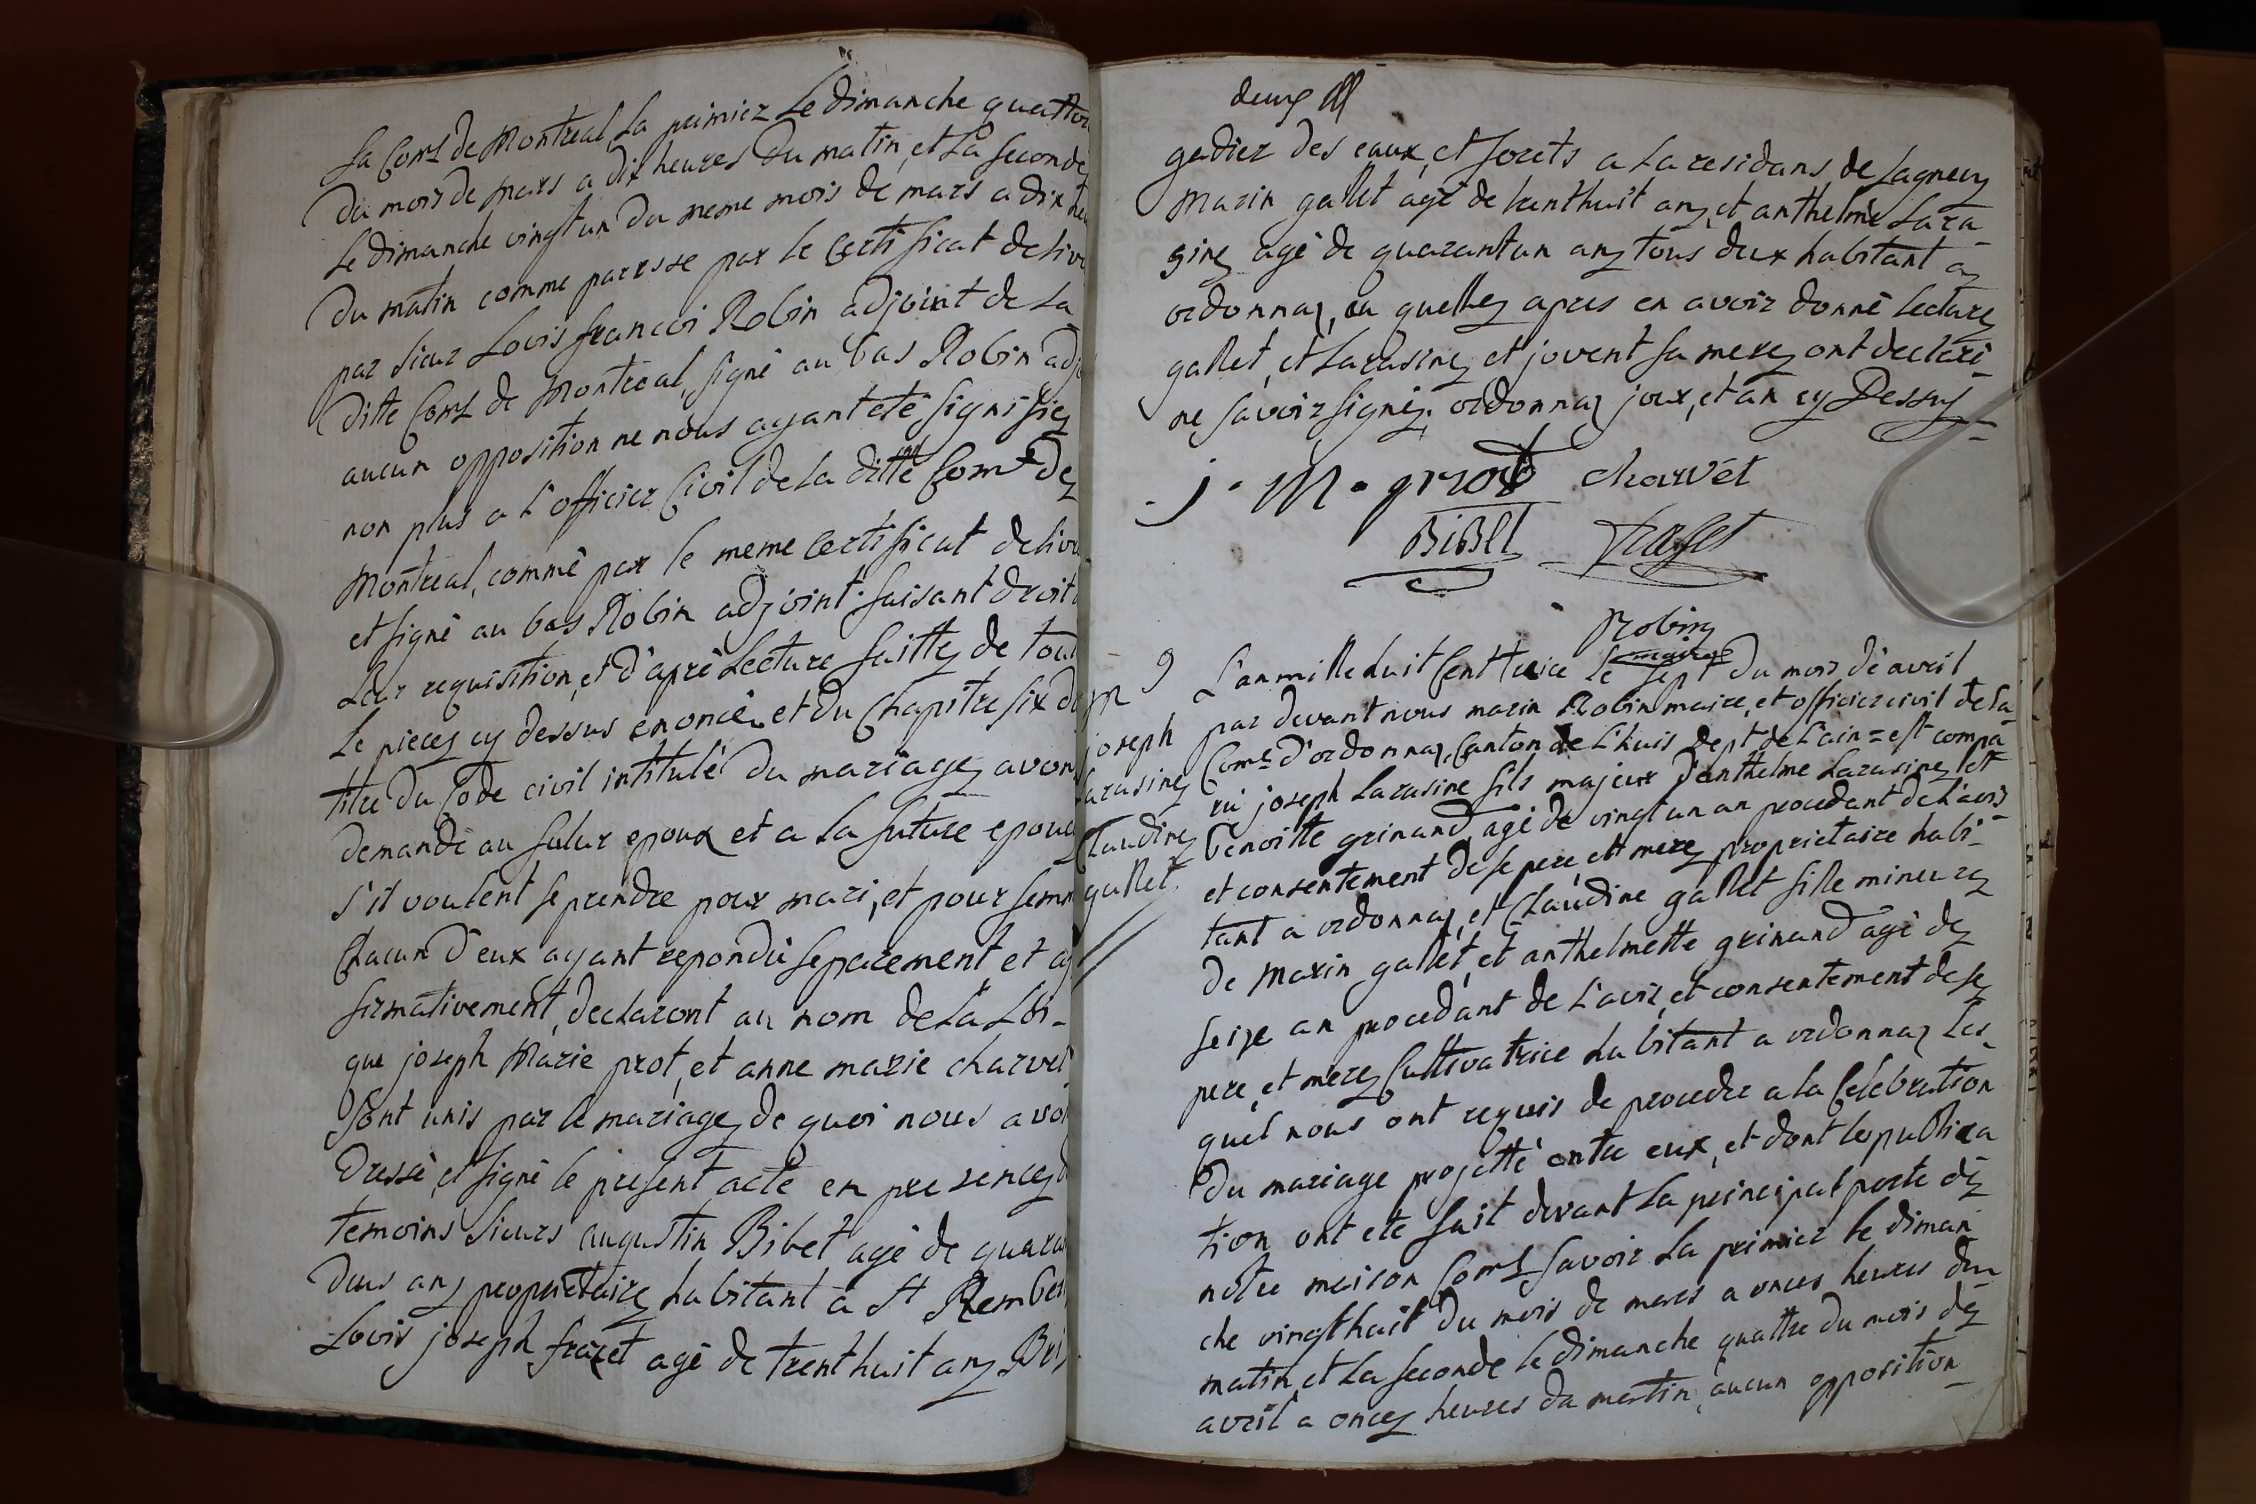 la Com.e de Montreal, la primiez Le dimanche quattor
du mois de mars a dix heures du matin, et La seconde
Le dimanche vingt un du meme mois de mars a dix heu
du matin comme paresse par le Certificat delivr
par sieur Louis francoi Robin adjoint de La
ditte Com.e de Montreal, signé au bas Robin adj
aucun opposition ne nous ayant eté signifiez
non plus a L'officiez Civil de La ditte Com.e de
Montreal, commé par le meme Certificat delivr
et signé au bas Robin adjoint. faisant droit a
Leur requisition, et d'aprè Lecture faitte de tout
Le pieces cy dessus enoncè, et du Chapitre six du
titre du Code civil intitulé du mariage, avons
demandé au futur epoux et a la future epouse
s'il voulent se prendre pour mari, et pour femm
Chacun d'eux ayant repondu separement et af
firmativement, declaront au nom de La Loi-
que joseph Marie prot, et anne marie charvet
Sont unis par le mariage, de quoi nous avon
dressé, et signé le present acte en presence, d
temoins sieurs augustin Bibet agé de quaran
deus ans proprietaire, habitant a St Rember
Louis joseph frazet agé de trent huit ans Bri
deux
gediez des eaux, et forets a La residans de Lagneu
Marin gallet agé de trenthuit ans, et anthelme Lara
sine, agé de quarantun ans tous deux habitant a
ordonnaz, au quelles apres en avoir donné lecture
gallet, et Larasine, et jovent sa mere, ont declaré
ne savoir signé; ordonnaz jour, et an cy Dessus
j. M. prot charvet
BiBET frazet
Robin
maire
m 9
joseph
Larasine
Claudine
gallet.
L'an mille huit Cent treice Le sept du mois d'avril
par devant nous marin Robin maire, et officiez civil de La
Com.e d'ordonnaz, Canton de L'huis dept de L'ain = est compa
ru joseph Larasine fils majeur d'anthelme Larasine, et
benoitte grinand, agé de vingt un an procedant de L'avis
et consentement de se pere, et mere, proprietaire habi-
tant a ordonnaz, et Claudine gallet fille mineure
de Marin gallet, et anthelmette grinand agé de
seize an procedant de L'avis, et consentement de se
pere, et mere, Cultivatrice habitant a ordonnaz Les-
quel nous ont requis de proceder a la Celebration
du mariage projetté entre eux, et dont le publica
tion ont eté fait devant La principal porte de
notre maison Com.e savoir La primiez le diman
che vingt huit du mois de mars a onces heures du
matin, et La seconde le dimanche quattre du mois de
avril a onces heures du matin, aucun opposition